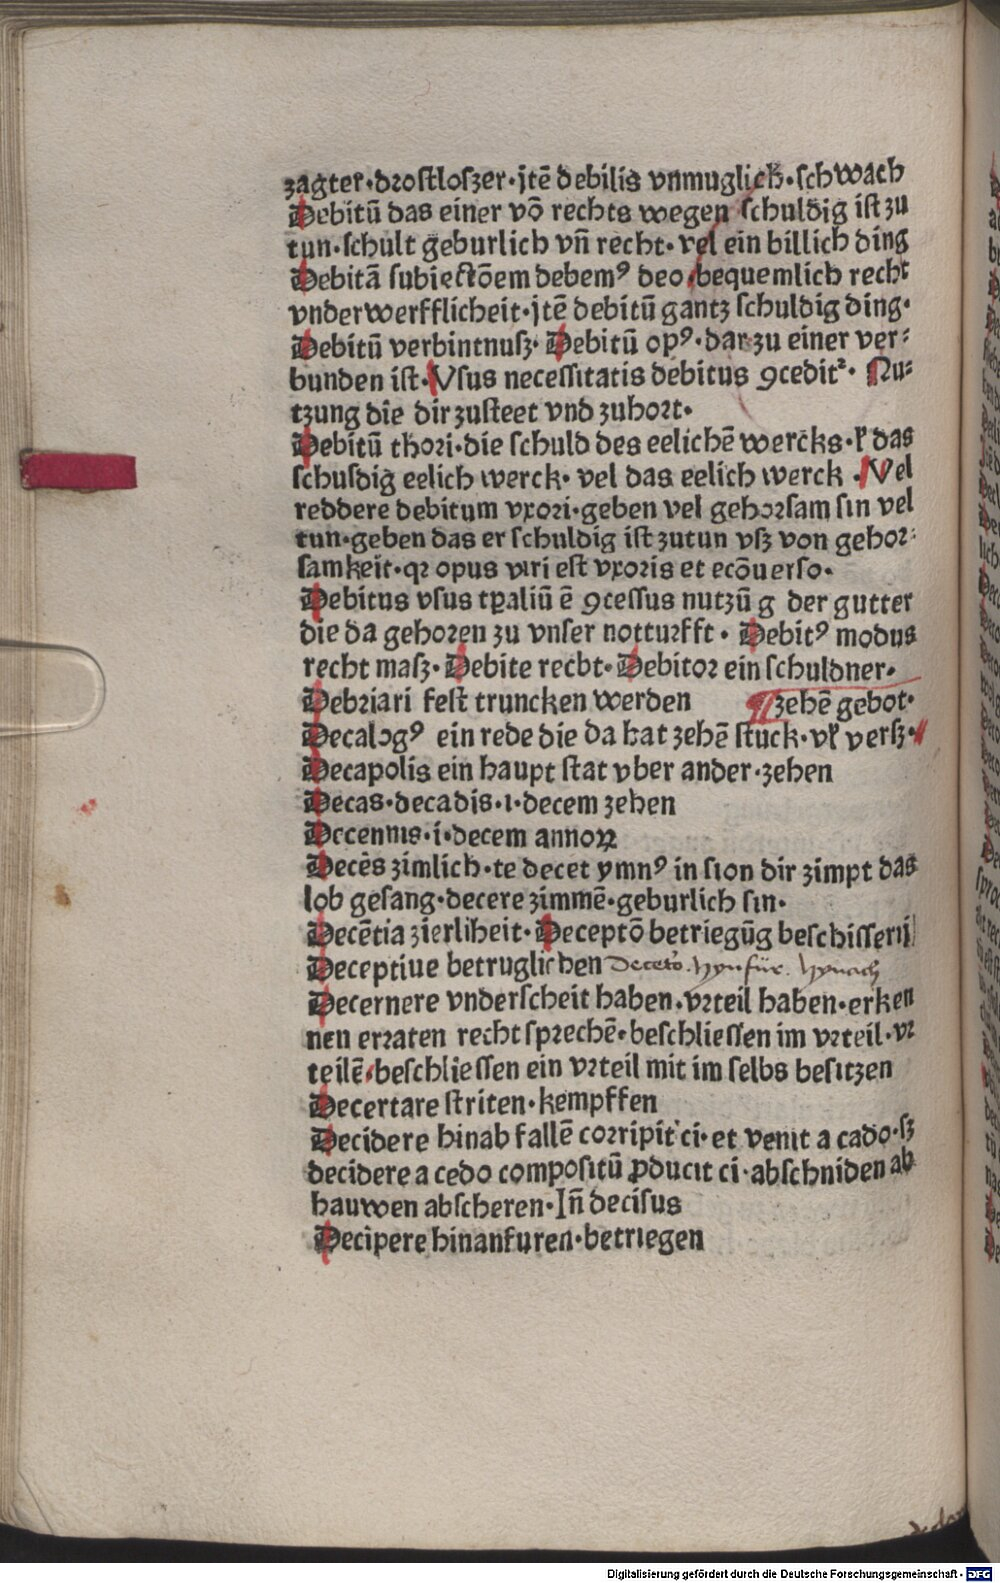 zagter·drostloszer·jtē debilis vnmuglich·schwach
Debitū das einer vō rechts wegen schuldig ist zu
tun·schult geburlich vn̄ recht·vel ein billich ding
Debitā subiectōem debemꝰ deo·bequemlich recht
vnderwerfflicheit·jtē debitū gantz schuldig ding·
Debitū verbintnusz·Debitū opꝰ·dar zu einer ver⸗
bunden ist·Vsus necessitatis debitus ꝯcedit²·Nu⸗
tzung die dir zusteet vnd zuhort·
Debitū thori·die schuld des eelichē wercks·ł das
schuldig eelich werck·vel das eelich werck·Vel
reddere debitum vxori·geben vel gehorsam sin vel
tun·geben das er schuldig ist zutun vsz von gehor⸗
samkeit·qꝛ opus viri est vxoris et ecōuerso·
Debitus vsus tꝑaliū ē ꝯcessus nutzū g der gutter
die da gehoren zu vnser notturfft·Debitꝰ modus
recht masz·Debite recht·Debitor ein schuldner·
Debriari fest truncken werden ¶ zehē gebot·
Decalogꝰ ein rede die da hat zehē stuck·vł versz·
Decapolis ein haupt stat vber ander·zehen
Decas·decadis·i·decem zehen
Decennis·i·decem annoꝝ
Decēs zimlich·te decet ymnꝰ in sion dir zimpt das
lob gesang·decere zimmē·geburlich sin·
Decētia zierliheit·Deceptō betriegūg beschisserij
Deceptiue betruglichen Deceto. hynfür. hynach
Decernere vnderscheit haben·vrteil haben·erken
nen erraten recht sprechē·beschliessen im vrteil·vr
teilē·beschliessen ein vrteil mit im selbs besitzen
Decertare striten·kempffen
Decidere hinab fallē corripit ci·et venit a cado·sz
decidere a cedo compositū ꝓducit ci·abschniden ab
hauwen abscheren·In̄ decisus
Decipere hinanfuren·betriegen
Digitalisierung gefördert durch die Deutsche Forschungsgemeinschaft · DFG